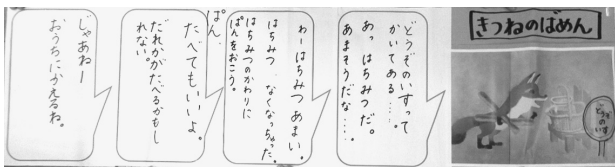 きつねのばめん
どうぞのいす
どうぞのいすって
かいてある……。
あっはちみつだ。
あまそうだな……。
わーはちみつあまい。
はちみつ なくなっちゃった。
はちみつのかわりに
ぱんをおこう。
ぱん、
たべてもいいよ。
だれかがたべるかもし
れない。
じゃあねー
おうちにかえるね。